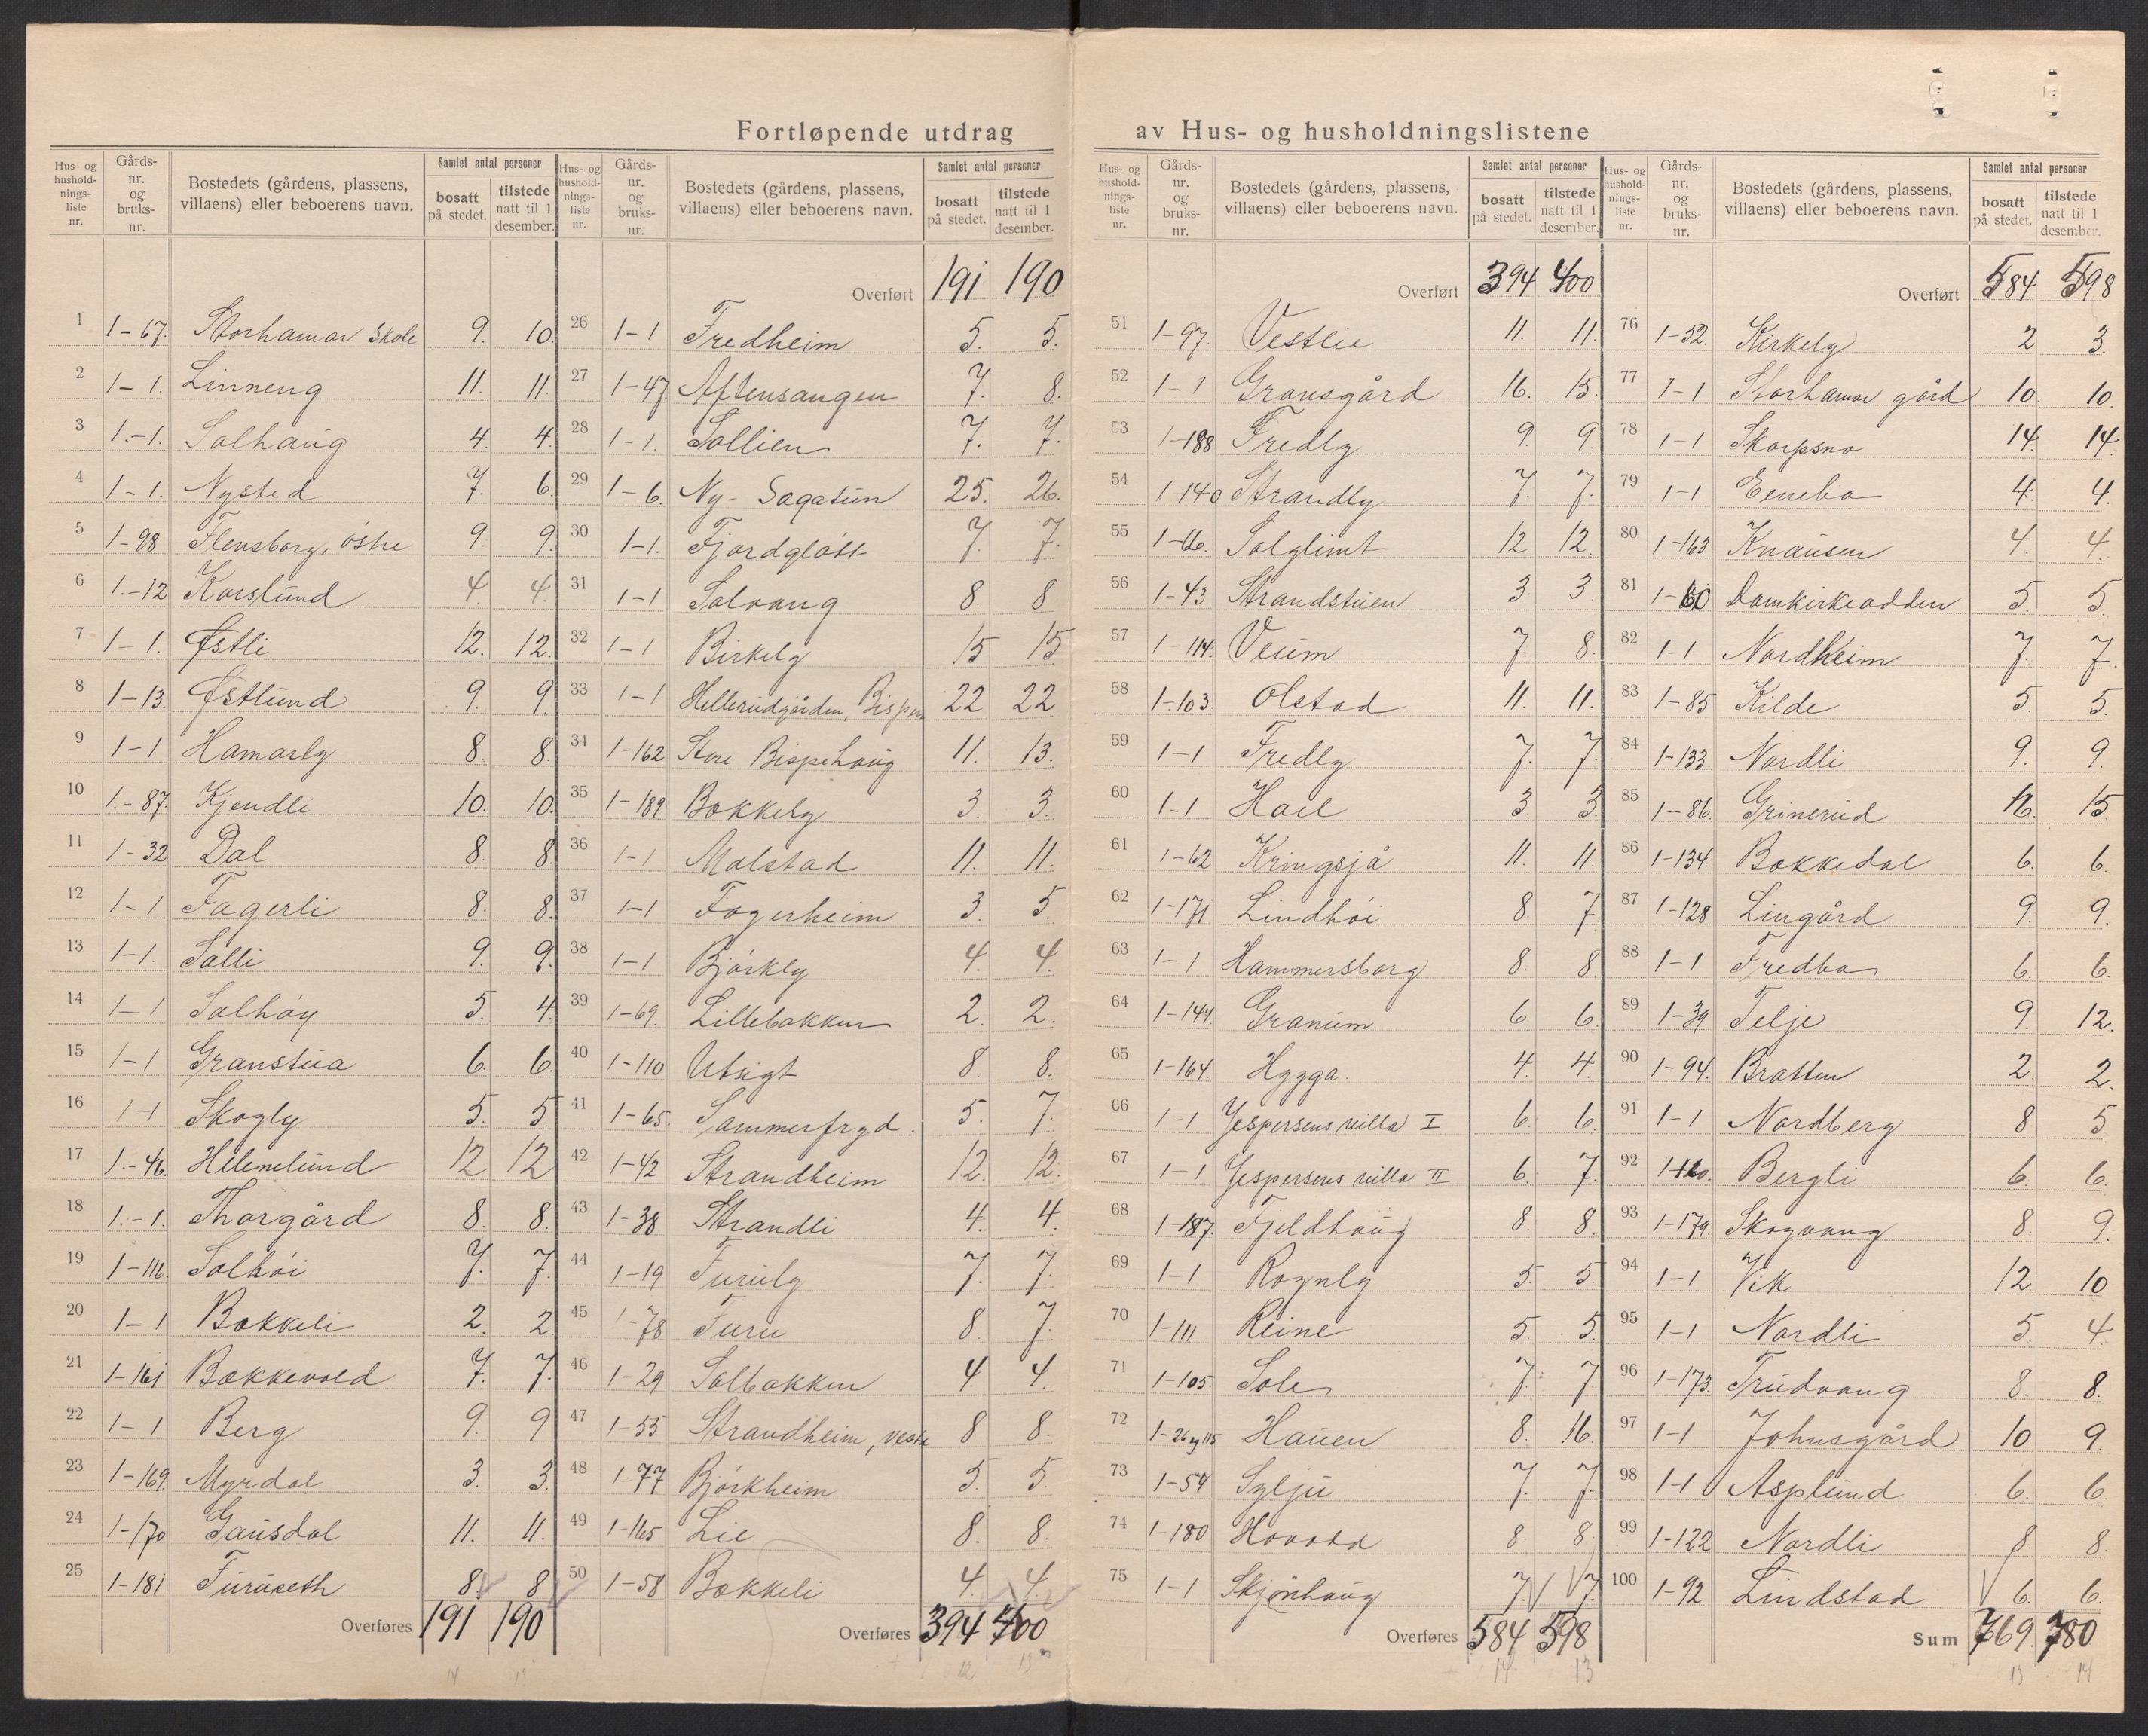 Fortløpende utdrag av Hus- og husholdningslistene
Hus- og husholdnings-liste nr. | Gårds-nr. og bruks-nr. | Bostedets (gårdens, plassens, villaens) eller beboerens navn. | Samlet antal personer | bosatt på stedet. | tilstede natt til 1 desember.
1 1-67. Storhamar Skole 9. 10.
2 1-1. Linneng 11. 11.
3 1.-1. Solhaug 4. 4.
4 1-1. Nysted 7. 6.
5 1-98 Flensborg, østre 9. 9.
6 1.-12 Korslund 4. 4.
7 1-1. Østli 12. 12.
8 1-13. Østlund 9. 9.
9 1-1 Hamarly 8. 8.
10 1.-87. Kjendli 10. 10.
11 1-32 Dal 8. 8.
12 1-1 Fagerli 8. 8.
13 1-1. Solli 9. 9.
14 1-1 Solhøy 5. 4.
15 1-1 Granstua 6. 6.
16 1-1 Skogly 5. 5.
17 1.-46. Helenelund 12 12
18 1.-1. Thorgård 8. 8.
19 1-116. Solhøi 7. 7.
20 1-1 Bakkeli 2. 2.
21 1-161 Bakkevold 7. 7.
22 1-1 Berg 9. 9
23 1-169. Myrdal 3. 3.
24 1-170 Gausdal 11. 11.
25 1-181 Furuseth 8. 8
Overføres 191 190
Hus- og hushold-nings-liste nr. | Gårds-nr. og bruks-nr. | Bostedets (gårdens, plassens, villaens) eller beboerens navn. | Samlet antal personer | bosatt på stedet. | tilstede natt til 1 desember.
Overført 191 190
26 1-1 Fredheim 5. 5.
27 1-47. Aftensangen 7. 8.
28 1-1. Sollien 7. 7.
29 1-6. Ny-Sagatun 25. 26.
30 1-1. Fjordgløtt 7. 7.
31 1-1 Solvang 8. 8
32 1-1 Birkely 15 15
33 1-1 Hellerudgården, Bispen 22 22
34 1-162 Store Bispehaug 11. 13.
35 1-189 Bakkely 3. 3.
36 1-1 Malstad 11. 11.
37 1-1 Fagerheim 3. 5.
38 1-1 Bjørkly 4. 4.
39 1-69. Lillebakken 2. 2.
40 1-110 Utsigt 8. 8.
41 1-65. Sommerfryd. 5. 7.
42 1-42 Strandheim 12. 12.
43 1-38 Strandli 4. 4.
44 1-19 Furuly 7. 7.
45 1-78 Furu 8. 7.
46 1-29 Solbakken 4. 4.
47 1-55 Strandheim, vestre 8 8.
48 1-77 Bjørkheim 5 5.
49 1-165 Lie 8. 8.
50 1-58 Bakkeli 4. 4.
Overføres 394 400
Hus- og hushold-nings-liste nr. | Gårds-nr. og bruks-nr. | Bostedets (gårdens, plassens, villaens) eller beboerens navn. | Samlet antal personer | bosatt på stedet. | tilstede natt til 1 desember.
Overført 394 400
51 1-97. Vestlie 11. 11.
52 1-1 Gransgård 16. 15.
53 1-188 Fredly 9. 9.
54 1-140 Strandly 7. 7.
55 1-66. Solglimt 12 12.
56 1-43 Strandstuen 3 3.
57 1-114. Veum 7. 8.
58 1-103. Olstad 11. 11.
59 1-1 Fredly 7. 7.
60 1-1 Hoel 3. 3.
61 1-62 Kringsjå 11. 11.
62 1-171 Lindhøi 8. 7.
63 1-1 Hammersborg 8. 8.
64 1-144. Granum 6. 6.
65 1-164. Hygga. 4. 4.
66 1-1 Jespersens villa I 6. 6.
67 1-1 Jespersens villa II 6. 7.
68 1-187. Fjeldhaug 8. 8.
69 1-1 Rognly 5. 5.
70 1-111 Reine 5. 5.
71 1-105. Sole 7. 7.
72 1-26 og 115 Hauen 8. 16.
73 1-54 Sylju 7. 7.
74 1-180 Hovold 8. 8.
75 1-1 Skjønhaug 7. 7.
Overføres 584 598
Hus- og hushold-nings-liste nr. | Gårds-nr. og bruks-nr. | Bostedets (gårdens, plassens, villaens) eller beboerens navn. | Samlet antal personer | bosatt på stedet. | tilstede natt til 1 desember.
Overført 584. 598
76 1-52. Kirkely 2 3.
77 1-1 Storhamar gård 10. 10.
78 1-1 Skarpsno 14. 14.
79 1-1 Enebo 4. 4.
80 1-163 Knausen 4. 4.
81 1-60 Domkirkeodden 5. 5.
82 1-1 Nordheim 7. 7.
83 1-85 Kilde 5. 5.
84 1-133. Nordli 9. 9.
85 1-86. Grinerud 16. 15.
86 1-134. Bakkedal 6. 6.
87 1-128 Lingård 9. 9.
88 1-1 Fredbo 6. 6.
89 1-39 Telje 9. 12.
90 1-94. Bratten 2. 2.
91 1-1 Nordberg 8 5
92 1-160. Bergli 6. 6.
93 1-179. Skogvang 8. 9.
94 1-1 Vik 12. 10
95 1-1 Nordli 5. 4.
96 1-173. Trudvang 8. 8.
97 1-1 Johnsgård 10 9.
98 1-1 Asplund 6. 6.
99 1-122 Nordli 8. 8.
100 1-92 Lindstad 6. 6.
Sum 769. 780
14 13 12 13 14 13 13 14